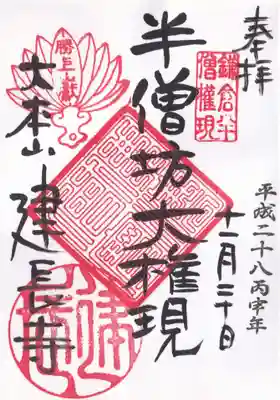 奉拝
鎌倉半
僧権現
平成二十八丙申年
十一月三十日
半僧坊大権現
勝上嶽
大本山建長寺